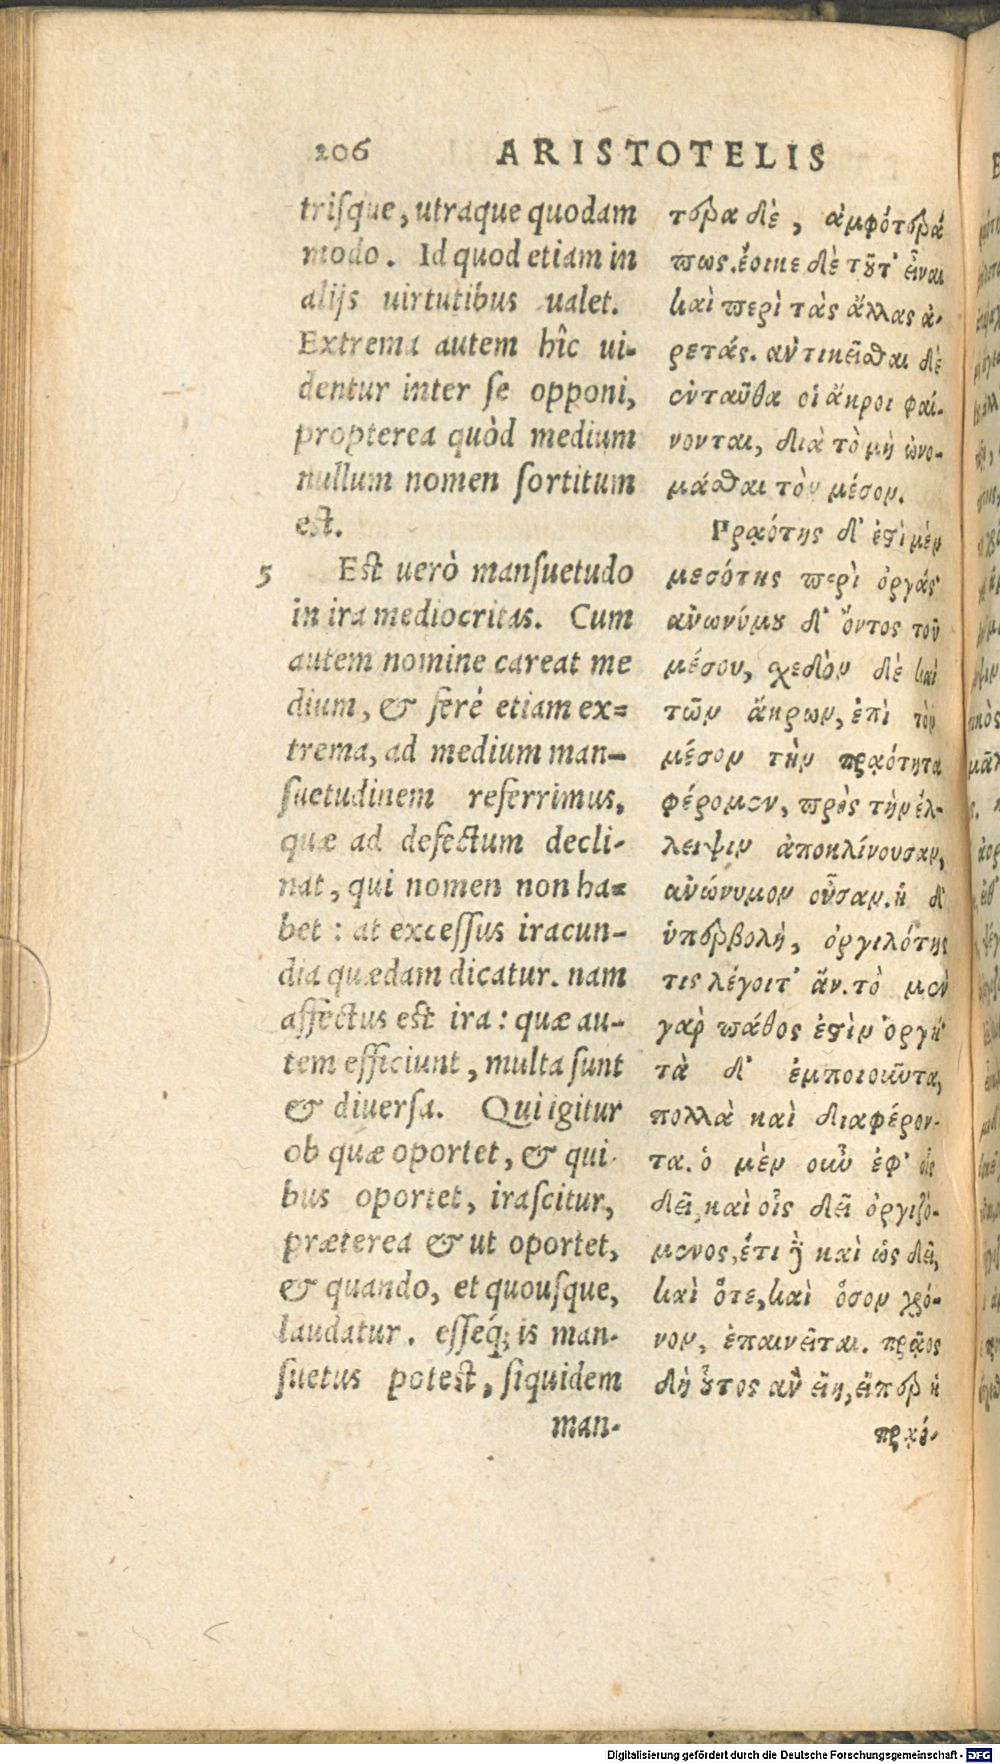 206 ARISTOTELIS
trisque, utraque quodam
modo. Id quod etiam in
alijs uirtutibus ualet.
Extrema autem hîc ui-
dentur inter se opponi,
propterea quòd medium
nullum nomen sortitum
est.
5 Est uerò mansuetudo
in ira mediocritas. Cum
autem nomine careat me
dium, & ferè etiam ex=
trema, ad medium man-
suetudinem referrimus,
quæ ad defectum decli-
nat, qui nomen non ha=
bet: at excessus iracun-
dia quædam dicatur. nam
affectus est ira: quæ au-
tem efficiunt, multa sunt
& diuersa. Qui igitur
ob quæ oportet, & qui-
bus oportet, irascitur,
præterea & ut oportet,
& quando, et quousque,
laudatur. esseq́; is man-
suetus potest, siquidem
man-
τερα δὲ, ἀμφότερά
πως. ἔοικε δὲ τοῦτ' εἶναι
καὶ περὶ τὰς ἄλλας ἀ-
ρετάς. ἀντικεῖσθαι δὲ
ἐνταῦθα οἱ ἄκροι φαί-
νονται, διὰ τὸ μὴ ὠνο-
μάσθαι τὸν μέσον.
Πραότης δ' ἐστὶ μὲν
μεσότης περὶ ὀργάς
ἀνωνύμου δ' ὄντος τοῦ
μέσου, σχεδὸν δὲ καὶ
τῶν ἄκρων, ἐπὶ τὸν
μέσον τὴν πραότητα
φέρομεν, πρὸς τὴν ἔλ-
λειψιν ἀποκλίνουσαν,
ἀνώνυμον οὖσαν. ἡ δ'
ὑπερβολὴ, ὀργιλότης
τις λέγοιτ' ἄν. τὸ μὲν
γὰρ πάθος ἐστὶν ὀργή·
τὰ δ' ἐμποιοῦντα,
πολλὰ καὶ διαφέρον-
τα. ὁ μὲν οὖν ἐφ' οἷς
δεῖ, καὶ οἷς δεῖ ὀργιζό-
μενος, ἔτι δὲ καὶ ὡς δεῖ,
καὶ ὅτε, καὶ ὅσον χρό-
νον, ἐπαινεῖται. πρᾷος
δὴ οὗτος ἂν εἴη, εἴπερ ἡ
πραό-
Digitalisierung gefördert durch die Deutsche Forschungsgemeinschaft - DFG